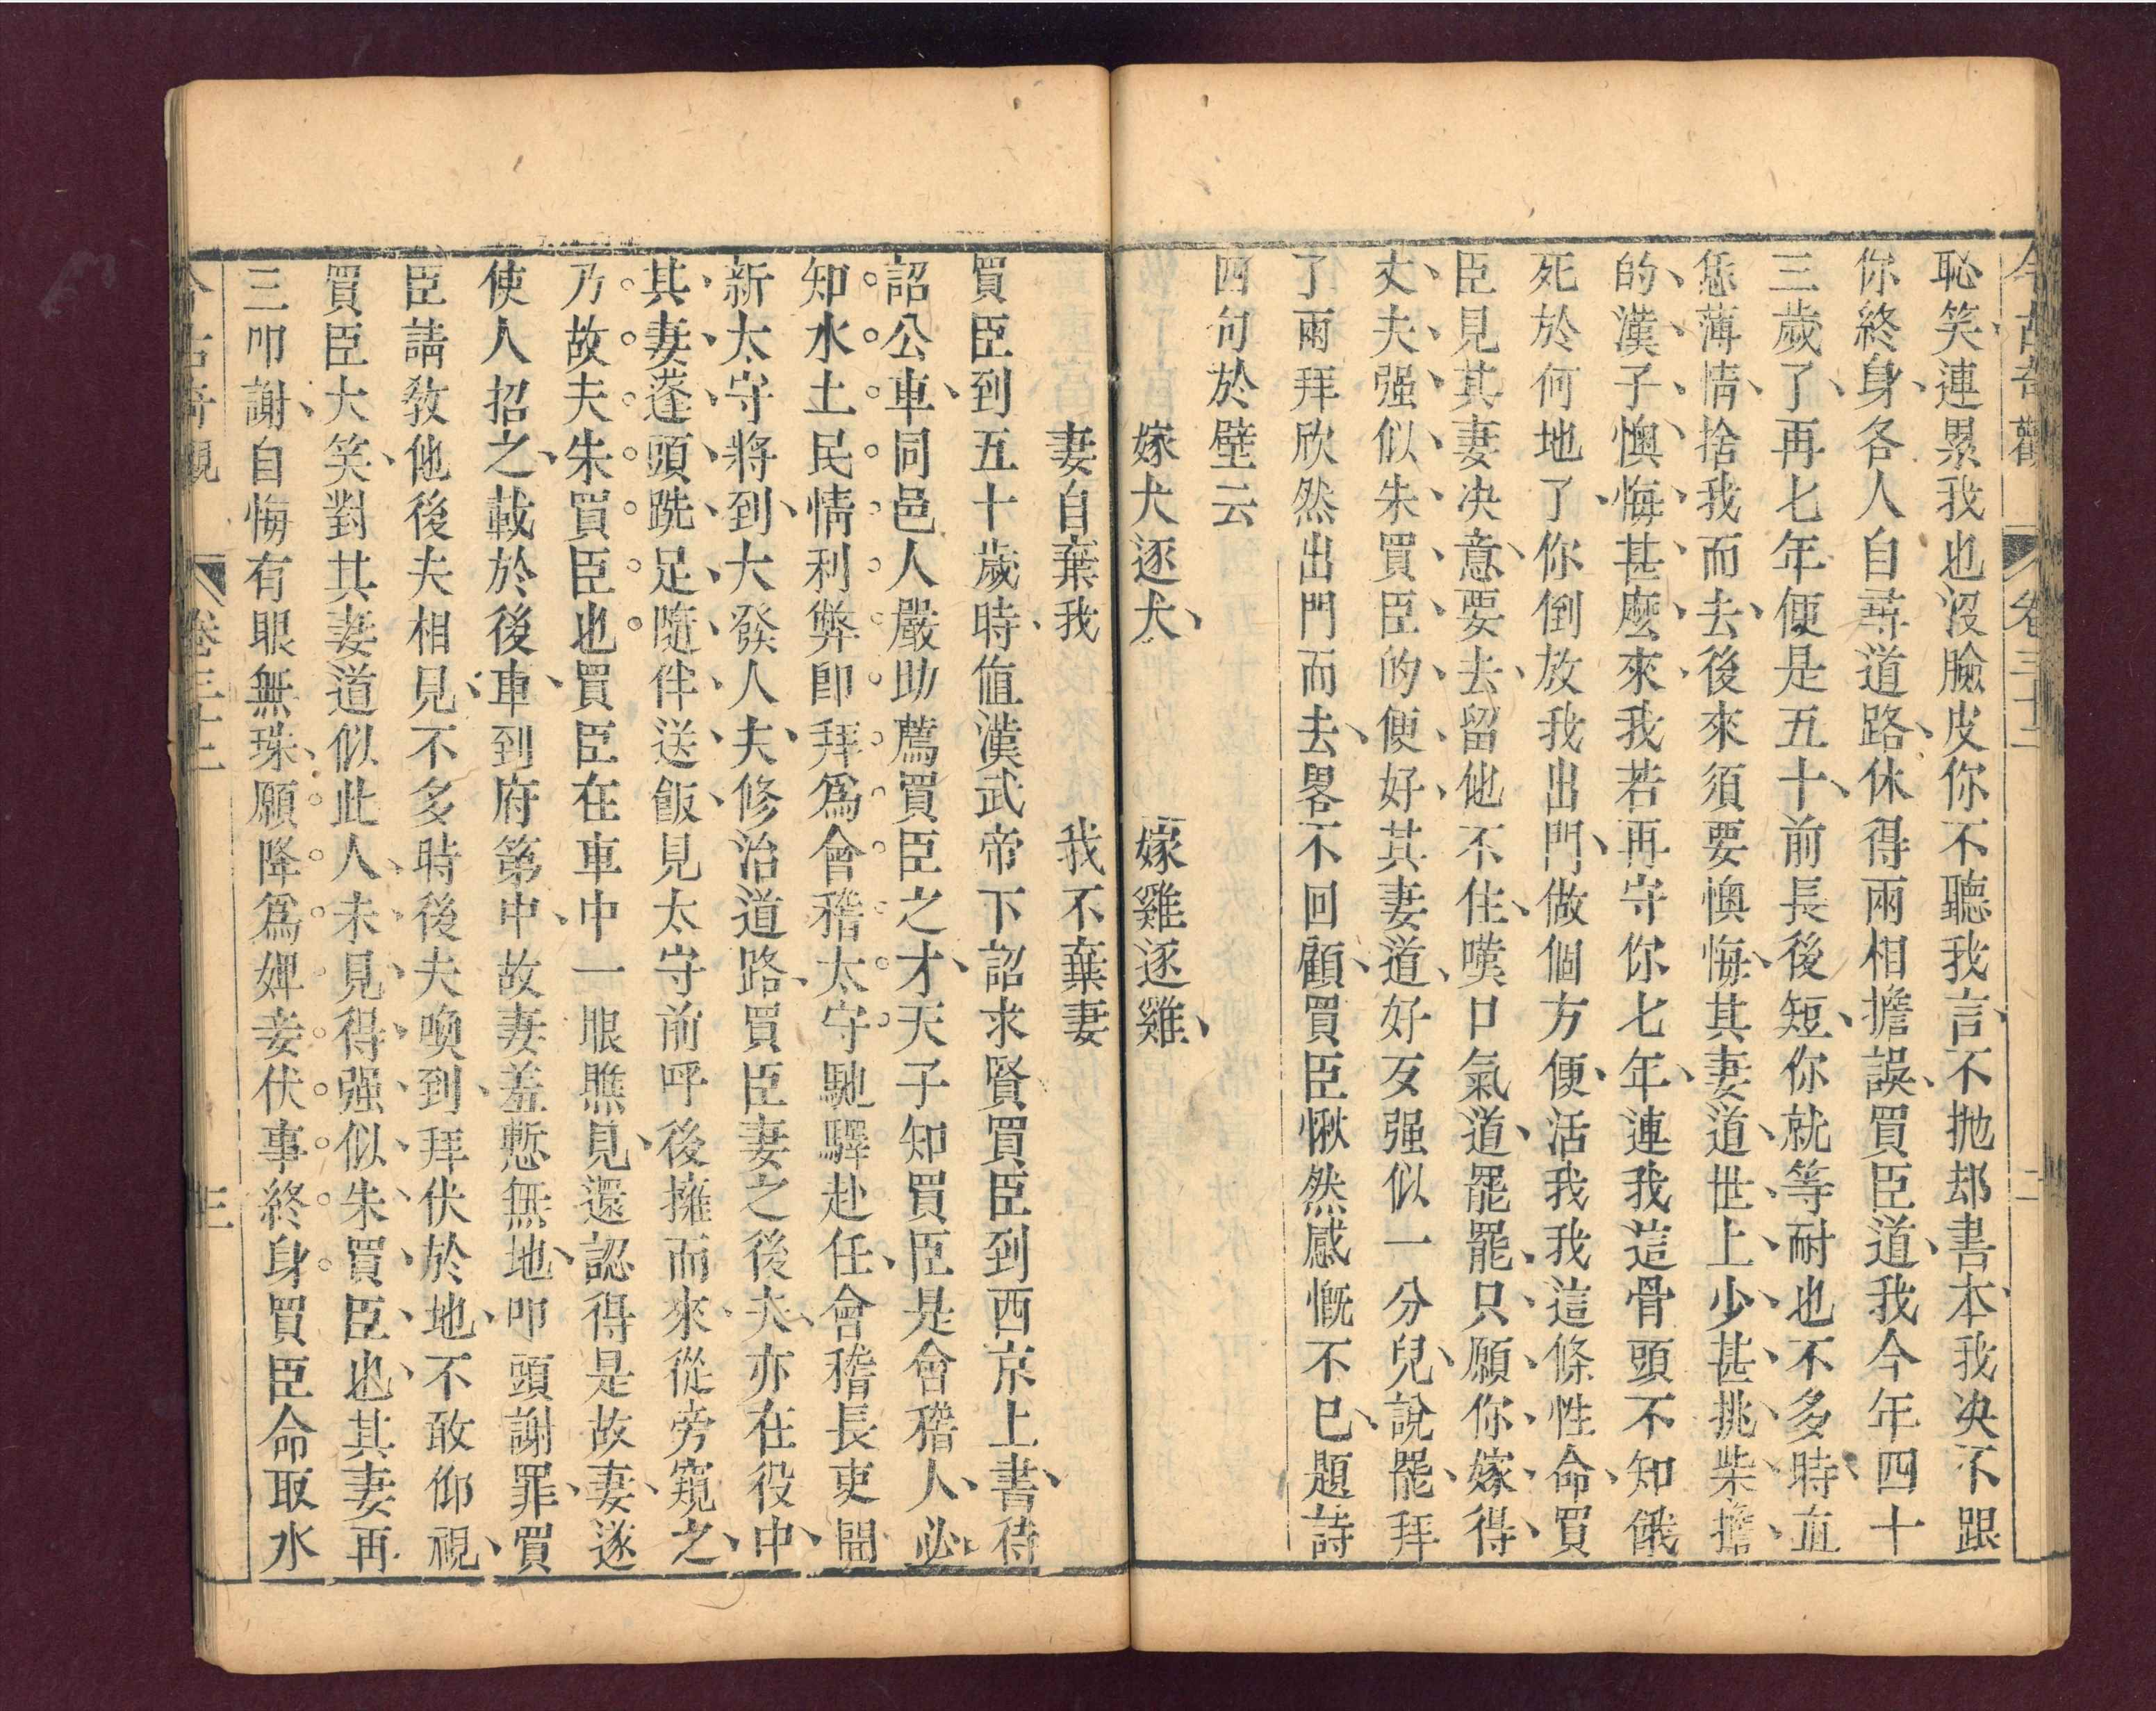 今古奇觀 卷三十二 二
恥笑連累我也沒臉皮你不聽我言不抛却書本我决不跟
你終身各人自尋道路休得兩相擔誤買臣道我今年四十
三歲了再七年便是五十前長後短你就等耐也不多時直
恁薄情捨我而去後來須要懊悔其妻道世上少甚挑柴擔
的漢子懊悔甚麽來我若再守你七年連我這骨頭不知餓
死於何地了你倒放我出門做個方便活我我這條性命買
臣見其妻决意要去留他不住嘆口氣道罷罷只願你嫁得
丈夫强似朱買臣的便好其妻道好歹强似一分兒說罷拜
了兩拜欣然出門而去畧不回顧買臣愀然感慨不已題詩
四句於壁云
嫁犬逐犬 嫁雞逐雞
妻自棄我 我不棄妻
買臣到五十歲時值漢武帝下詔求賢買臣到西京上書待
詔公車同邑人嚴助薦買臣之才天子知買臣是會稽人必
知水土民情利弊卽拜爲會稽太守馳驛赴任會稽長吏聞
新太守將到大發人夫修治道路買臣妻之後夫亦在役中
其妻蓬頭跣足隨伴送飯見太守前呼後擁而來從旁窺之
乃故夫朱買臣也買臣在車中一眼瞧見還認得是故妻遂
使人招之載於後車到府第中故妻羞慙無地叩頭謝罪買
臣請教他後夫相見不多時後夫喚到拜伏於地不敢仰視
買臣大笑對其妻道似此人未見得强似朱買臣也其妻再
三叩謝自悔有眼無珠願降爲婢妾伏事終身買臣命取水
今古奇觀 卷三十二 三